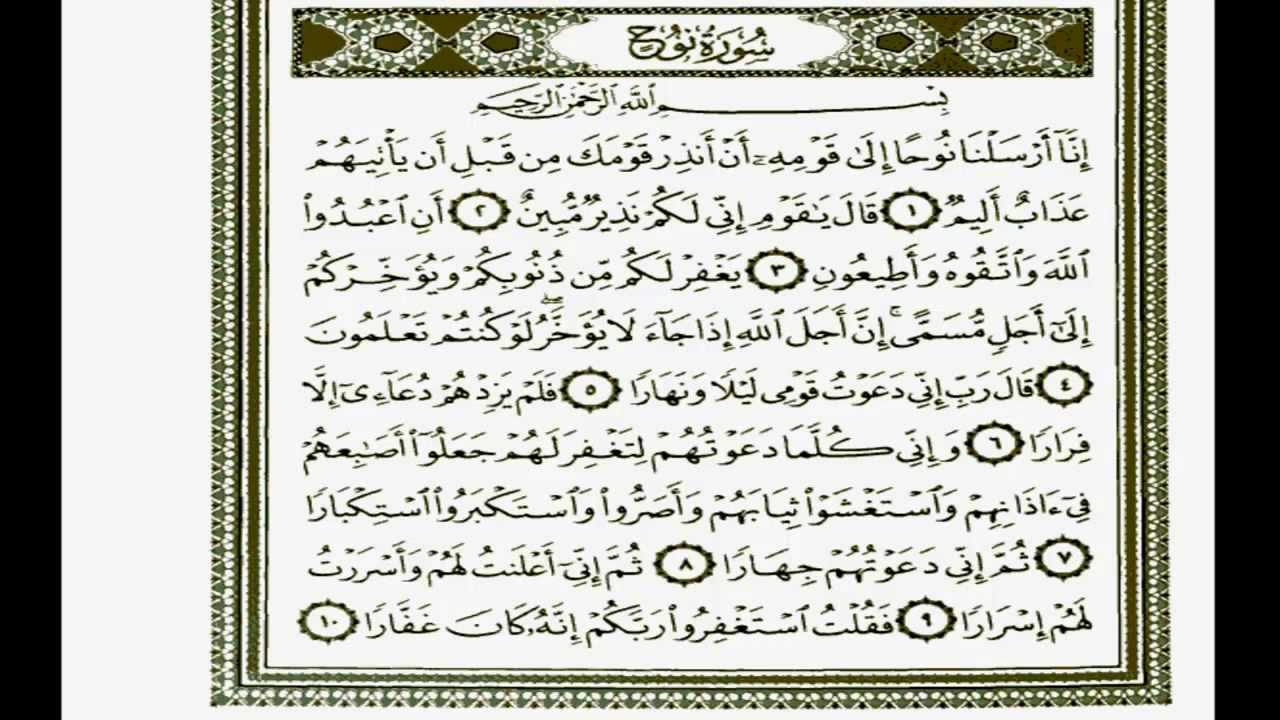 سُورَةُ نُوحٍ
بِسْمِ ٱللَّهِ ٱلرَّحْمَٰنِ ٱلرَّحِيمِ
إِنَّآ أَرْسَلْنَا نُوحًا إِلَىٰ قَوْمِهِۦٓ أَنْ أَنذِرْ قَوْمَكَ مِن قَبْلِ أَن يَأْتِيَهُمْ
عَذَابٌ أَلِيمٌ ١ قَالَ يَٰقَوْمِ إِنِّى لَكُمْ نَذِيرٌ مُّبِينٌ ٢ أَنِ ٱعْبُدُوا۟
ٱللَّهَ وَٱتَّقُوهُ وَأَطِيعُونِ ٣ يَغْفِرْ لَكُم مِّن ذُنُوبِكُمْ وَيُؤَخِّرْكُمْ
إِلَىٰٓ أَجَلٍ مُّسَمًّى ۚ إِنَّ أَجَلَ ٱللَّهِ إِذَا جَآءَ لَا يُؤَخَّرُ ۖ لَوْ كُنتُمْ تَعْلَمُونَ
٤ قَالَ رَبِّ إِنِّى دَعَوْتُ قَوْمِى لَيْلًا وَنَهَارًا ٥ فَلَمْ يَزِدْهُمْ دُعَآءِىٓ إِلَّا
فِرَارًا ٦ وَإِنِّى كُلَّمَا دَعَوْتُهُمْ لِتَغْفِرَ لَهُمْ جَعَلُوٓا۟ أَصَٰبِعَهُمْ
فِىٓ ءَاذَانِهِمْ وَٱسْتَغْشَوْا۟ ثِيَابَهُمْ وَأَصَرُّوا۟ وَٱسْتَكْبَرُوا۟ ٱسْتِكْبَارًا
٧ ثُمَّ إِنِّى دَعَوْتُهُمْ جِهَارًا ٨ ثُمَّ إِنِّىٓ أَعْلَنتُ لَهُمْ وَأَسْرَرْتُ
لَهُمْ إِسْرَارًا ٩ فَقُلْتُ ٱسْتَغْفِرُوا۟ رَبَّكُمْ إِنَّهُۥ كَانَ غَفَّارًا ١٠